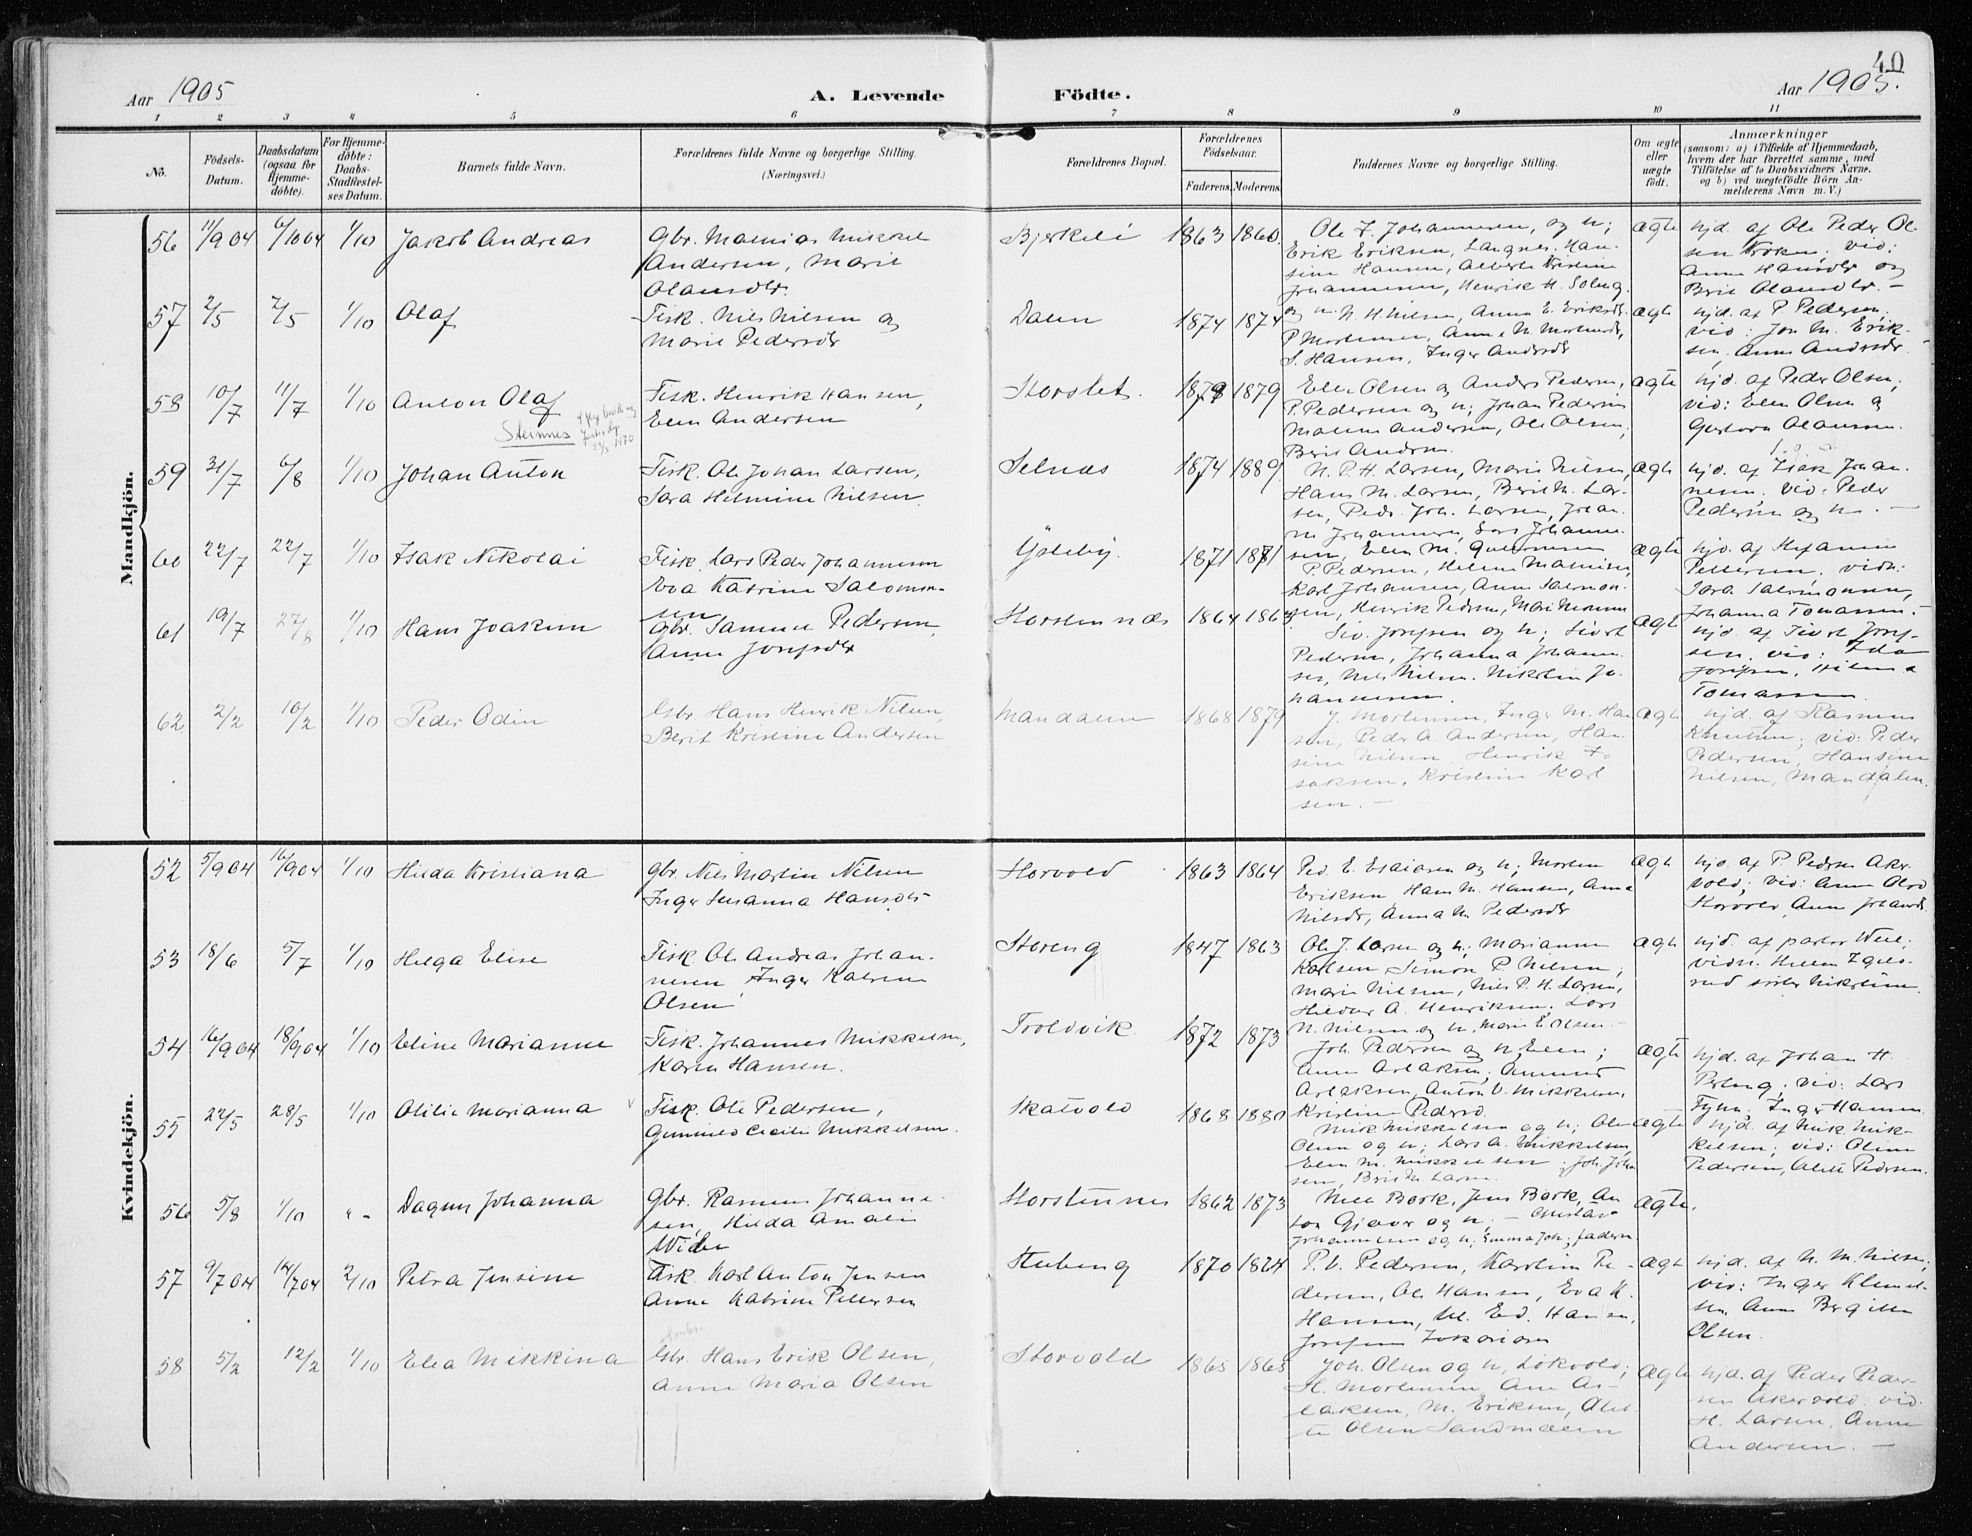 40
Aar 1905
A. Levende Födte.
Aar 1905.
1 2 3 4 5 6 7 8 9 10 11
No.
Födsels-Datum.
Daabsdatum (ogsaa for Hjemme-döbte).
For Hjemme-döbte: Daabs-Stadfæstel-ses Datum.
Barnets fulde Navn.
Forældrenes fulde Navne og borgerlige Stilling. (Næringsvei.)
Forældrenes Bopæl.
Forældrenes Födselsaar.
Faderens. Moderens.
Faddernes Navne og borgerlige Stilling.
Om ægte eller uægte födt.
Anmærkninger
(saasom: a) i Tilfælde af Hjemmedaab,
hvem der har forrettet samme, med
Tilföielse af to Daabsvidners Navne,
og b) ved uægtefödte Börn An-
melderens Navn m. V.)
Mandkjön.
56 11/9 04 6/10 04 1/10 Jakob Andreas
Gbr. Mathias Mikkel
Andersen, Marit
Olausdtr.
Bjerkeli 1863 1860
Ole J. Johannesen, og h;
Erik Eriksen, Langnes, Han-
sine Hansen, Alberte Kristine
Johannesen, Henrik H. Soleng.
ægte
hjd. af Ole Peder Ol-
sen Kroken; vid:
Anne Hansdtr og
Berit Olausdtr. -
57 2/5 7/5 1/10 Olaf
Fisk. Nils Nilsen og
Marie Pedersdtr
Dalen 1874 1874
og h. N. H. Nilsen, Anna E. Eriksdtr.
P. Mortensen, Anne M. Mortensdtr,
S. Hansen, Inger Andersdtr
ægte
hjd. af P. Pedersen;
vid: Jon M. Erik-
sen, Anne Andersdtr.
58 10/7 11/7 1/10 Anton Olaf
Steinnes
Fisk. Henrik Hansen,
Elen Andersen
Storslet. 1879 1879
Elen Olsen og Anders Pedersen,
P. Pedersen og h; Johan Pedersen
Malene Andersen, Ole Olsen,
Berit Andersen.
ægte
hjd. af Peder Olsen;
vid: Elen Olsen og
Gustava Olaussen.
59 31/7 6/8 1/10 Johan Anton
Fisk. Ole Johan Larsen,
Sara Helmine Nilsen.
Selnæs 1874 1889
N. P. H. Larsen, Marie Nilsen,
Hans M. Larsen, Berit N. Lar-
sen, Peder Joh. Larsen, Johan-
ægte
hjd. af Isak Johan-
nesen. vid: Peder
Pedersen og h. -
60 22/7 22/7 1/10 Isak Nikolai
Fisk. Lars Peder Johannesen
Eva Katrine Salomon-
sen
1871 1871
P. Pedersen, Helene Mathisen,
Karl Johansen, Anne Salomon-
sen, Henrik Pedersen,
ægte
hjd. af Stefanine
Pettersen. vidn:
Sara Salomonsen,
Johanna Tomassen. -
61 19/7 27/8 1/10 Hans Joakim
Gbr. Samuel Pedersen,
Anne Josefsdtr
Storstennæs 1864
Siv. Josefsen og h; Sivert
Pedersen, Johanna Johanne-
sen, Nils Nilsen. Nikolin Jo-
hannesen.
ægte
hjd. af Sivert Josef-
sen. vid: Ida
Josefsen,
Tomassen.
62 2/2 10/2 1/10 Peder Odin
Gbr Hans Henrik Nilsen,
Berit Kristine Andersen
Mandalen 1868 1879
J. Mortensen, Inger M. Han-
sen, Peder A. Andersen, Han-
sine Nilsen, Henrik I-
saksen, Kristine Karl
sen. -
ægte
hjd. af Rasmus
Knutsen; vid: Peder
Pedersen, Hansine
Nilsen, Mandalen.
Kvindekjön.
52 5/9 04 16/9 04 1/10 Hilda Kristiana
Gbr. Nils Martin Nilsen
Inger Susanna Hansdtr
Storvold 1863 1864
Ped. E. Esaiasen og h; Morten
Eriksen Hans M. Hansen, Anna
Nilsdtr, Anna M. Pedersdtr
ægte
hjd. af P. Pedersen Aker-
vold; vid: Anne
Storvold, Anne
53 18/6 5/7 1/10 Helga Elise
Fisk. Ole Andreas Johan-
nesen, Inger Katrine
Olsen
Storeng 1847 1863
Ole J. Larsen og h; Marianne
Karlsen Simon P. Nilsen;
Marie Nilsen, Nils P. H. Larsen,
Hildur A. Henriksen. Lars
N. Nilsen og h. Marie E. Olsen. -
ægte
hjd. af pastor
vidn. Helene
54 16/9 04 18/9 04 1/10 Eline Marianne
Fisk. Johannes Mikkelsen,
Karen Hansen.
Troldvik. 1872 1873
Joh. Pedersen og h, Elen;
Anne Aslaksen; Amund
Aslaksen, Anton O. Mikkelsen,
Kristine Peders.
ægte
hjd. af Johan H.
vid: Lars
Fynn, Inger Hansen
55 22/5 28/5 1/10 Otilie Marianna
Fisk. Ole Pedersen,
Gunhild Cecilie Mikkelsen.
Skatvold 1868 1880
Mik Mikkelsen og h; Ole
Olsen og h; Lars A. Mikkelsen,
Elen M. Mikkelsen; Joh. Joha-
ægte
hjd. af Mik. Mik-
kelsen; vid: Oline
Pedersen, Pedersen.
56 5/8 1/10 " - Dagny Johanna
Gbr. Rasmus Johanne-
sen, Hilda Amalie
Storstennes 1862 1873
Nille Bork, Jens Bork, An-
ton Gjæver og h; - Gustav
Johannesen og h; Emma Joh; fadern.
ægte.
57 9/7 04 14/7 04 2/10 Petra Jensine
Fisk. Karl Anton Jensen
Anne Katrine Pettersen
Stubeng 1870 1864
P. O. Pedersen, Karoline Pe-
dersen, Ole Hansen, Eva K.
Hansen, M. Ed. Hansen,
Josefine Zakariasen
ægte
hjd. af N. M. Nilsen;
vid: Inger Klemet-
sen Anne Bergitte
Olsen.
58 5/2 12/2 1/10 Elea Mikkina
Gbr. Hans Erik Olsen,
Anne Maria Olsen
Storvold 1865 1865
Joh. Olsen og h, Løkvold;
H. Mortensen, Ane As-
laksen, M. Eriksen, Ole-
te Olsen Sandmælen
ægte
hjd. af Peder Peder-
sen Akervold. vid.
H. Larsen, Anne
Andersen. -